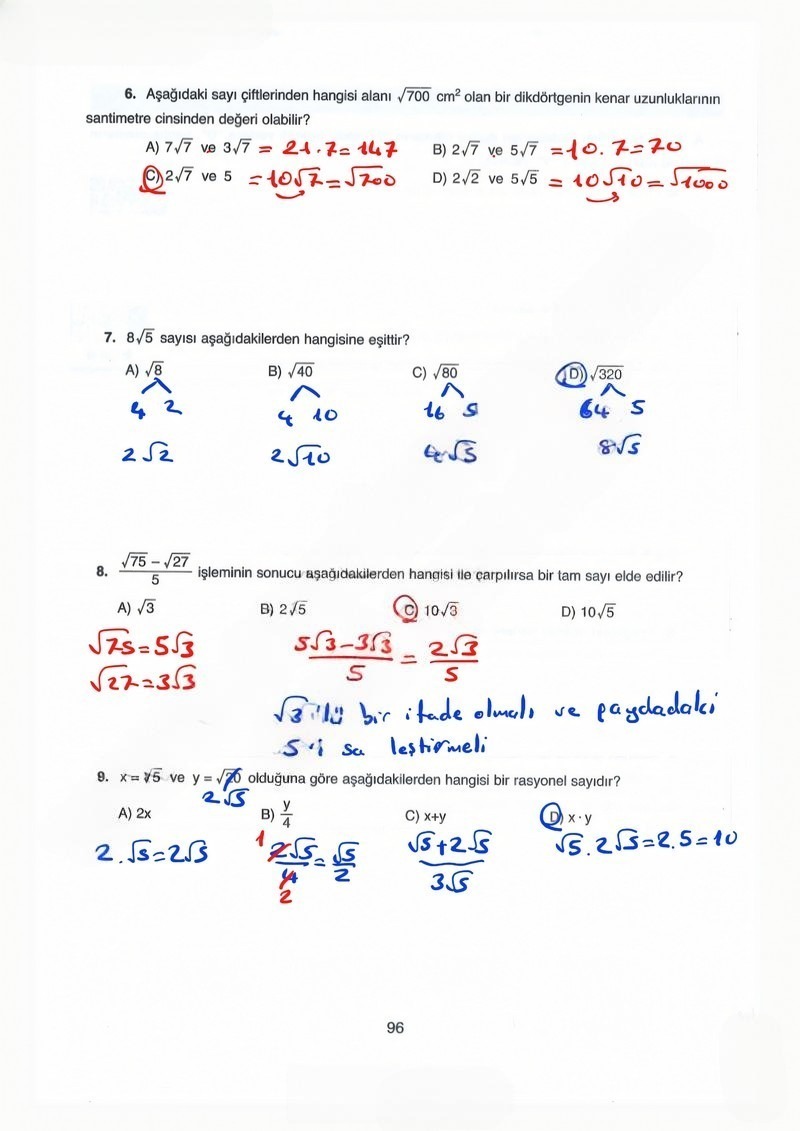 6. Aşağıdaki sayı çiftlerinden hangisi alanı √700 cm² olan bir dikdörtgenin kenar uzunluklarının
santimetre cinsinden değeri olabilir?
A) 7√7 ve 3√7 = 21.7= 147 B) 2√7 ve 5√7 =10.7=70
C) 2√7 ve 5 =10√7=√700 D) 2√2 ve 5√5 = 10√10=√1000
7. 8√5 sayısı aşağıdakilerden hangisine eşittir?
A) √8 B) √40 C) √80 D) √320
4 2 4 10 16 5 64 5
2√2 2√10 4√5 8√5
8. (√75 − √27)/5 işleminin sonucu aşağıdakilerden hangisi ile çarpılırsa bir tam sayı elde edilir?
A) √3 B) 2√5 C) 10√3 D) 10√5
√75=5√3 (5√3−3√3)/5 = 2√3/5
√27=3√3
√3'lü bir ifade olmalı ve paydadaki
5'i sa leştirmeli
9. x = √5 ve y = √20 olduğuna göre aşağıdakilerden hangisi bir rasyonel sayıdır?
2√5
A) 2x B) y/4 C) x+y D) x·y
2.√5=2√5 1 2√5/4 = √5/2 √5+2√5 √5.2√5=2.5=10
2 3√5
96